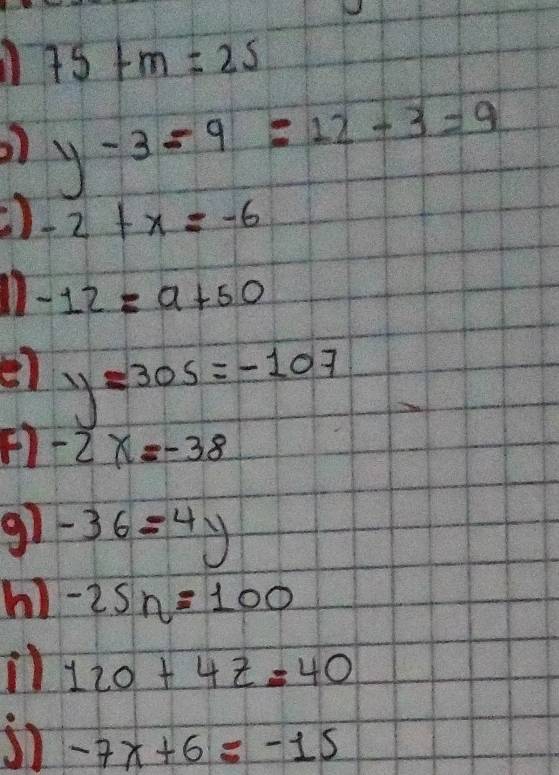 75 + m = 25
b) y - 3 = 9 = 12 - 3 = 9
c) -2 + x = -6
d) -12 = a + 50
e) y = 305 = -107
f) -2x = -38
g) -36 = 4y
h) -25n = 100
i) 120 + 4z = 40
j) -7x + 6 = -15